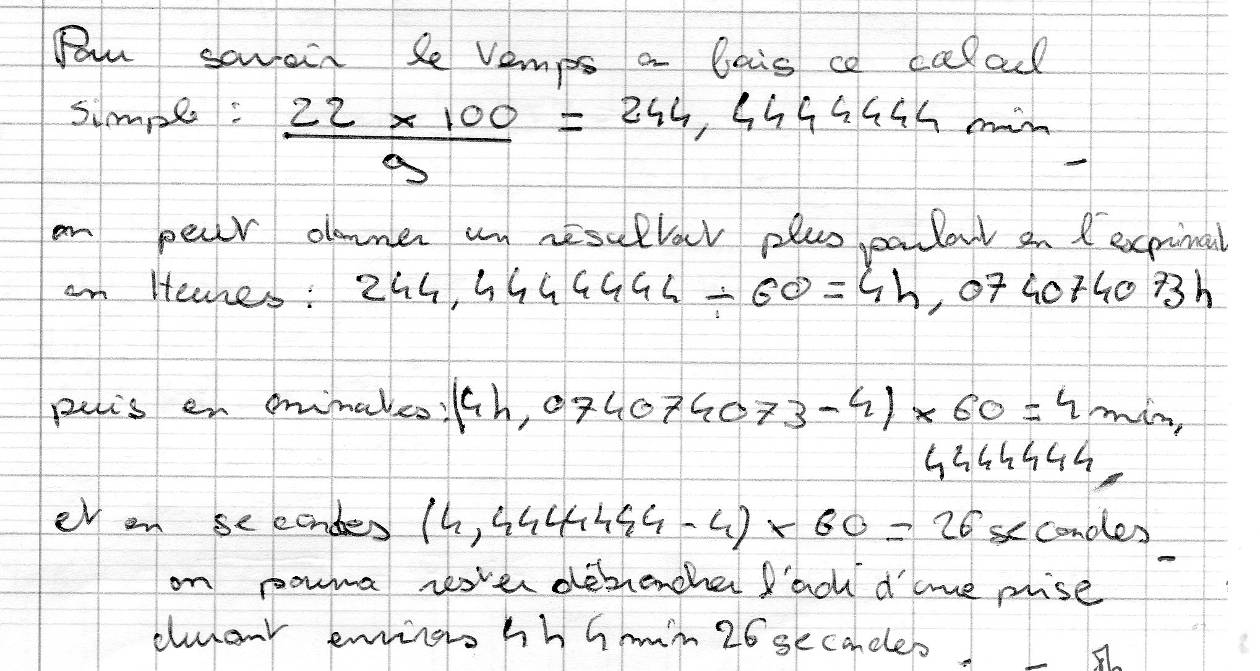 Pour savoir le temps on fais ce calcul
simple : 22 x 100 = 244, 4444444 min_
9
on peut donner un résultat plus parlant en l'exprimant
en Heures : 244, 4444444 ÷ 60 = 4h, 074074073h
puis en minutes : (4h, 074074073 - 4) x 60 = 4 min,
4444444,
et en secondes (4,4444444 - 4) x 60 = 26 secondes_
on pourra rester débrancher l'ordi d'une prise
durant environs 4h 4 min 26 secondes.